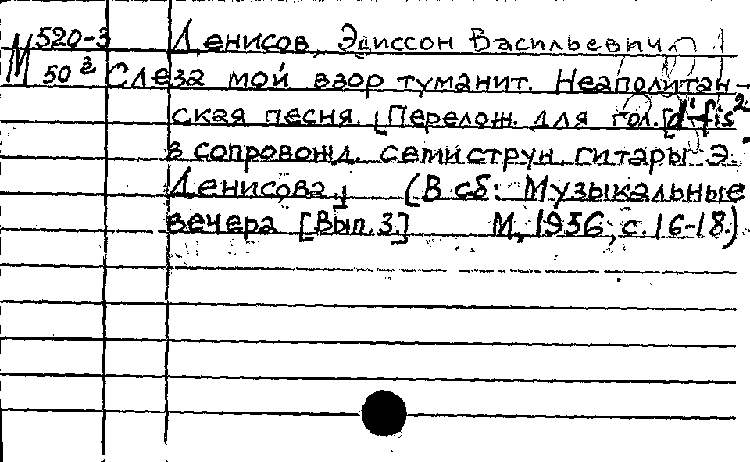 М 520-3 Денисов, Эдиссон Васильевич
50 2 Слеза мой взор туманит. Неаполитан-
ская песня. [Перелож. для гол. [d'-fis²]
в сопровожд. семиструн. гитары Э.
Денисова.] (В сб: Музыкальные
вечера [Вып. 3.] М, 1956, с. 16-18.)